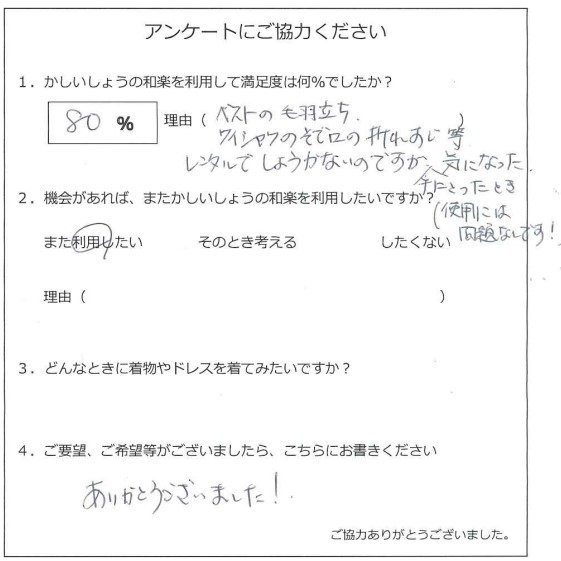 アンケートにご協力ください
1．かしいしょうの和楽を利用して満足度は何％でしたか？
80 % 理由（ ベストの毛羽立ち、 ）
ワイシャツのそで口の折れすじ等
レンタルでしょうがないのですが、気になった。
手にとったとき
2．機会があれば、またかしいしょうの和楽を利用したいですか？
（使用には
問題なしです！
また利用したい そのとき考える したくない
理由（ ）
3．どんなときに着物やドレスを着てみたいですか？
4．ご要望、ご希望等がございましたら、こちらにお書きください
ありがとうございました！
ご協力ありがとうございました。